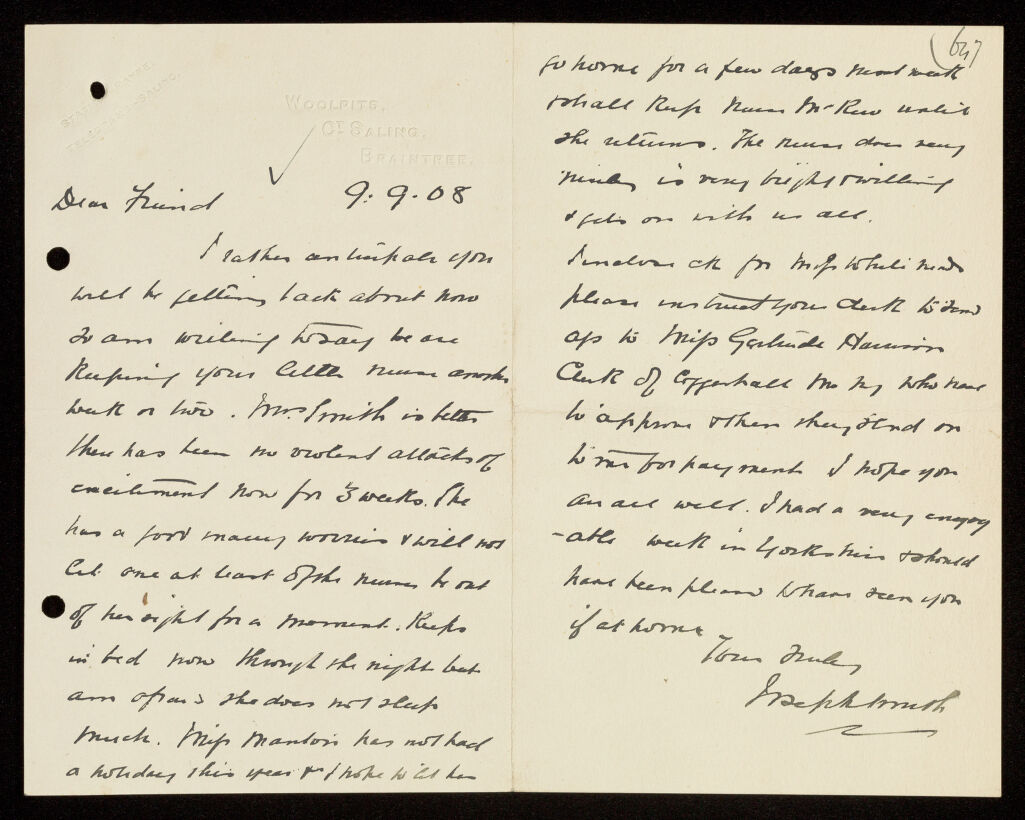 WOOLPITS,
GT. SALING,
BRAINTREE.
9.9.08
Dear Friend
I rather anticipate you
will be getting back about now
so am writing to say we are
keeping your little nurse another
week or two. Mrs Smith is better
there has been no violent attacks of
excitement now for 3 weeks. She
has a good many worries & will not
let one at least of the nurses be out
of her sight for a moment. Keeps
in bed now through the night but
am afraid she does not sleep
much. Miss Mantois has not had
a holiday this year & I hope to let her
(647
go home for a few days next week
& shall keep Nurse McKew until
she returns. The nurse does very
nicely is very bright & willing
& gets on with us all.
I enclose ck for Miss
please instruct your clerk to send
a/cs to Miss Gertrude Harrison
Clerk of Coggeshall who has
to approve & then they send on
to me for payment I hope you
are all well. I had a very enjoy
-able week in Yorkshire & should
have been pleased to have seen you
if at home
Yours truly
Joseph Smith